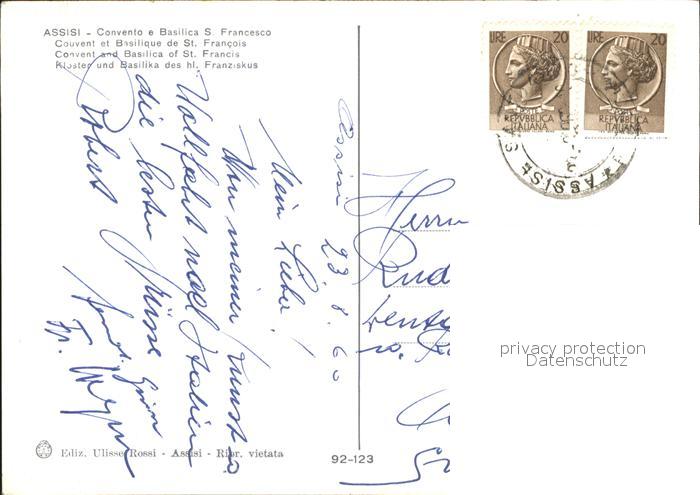 ASSISI - Convento e Basilica S. Francesco
Couvent et Basilique de St. François
Convent and Basilica of St. Francis
Kloster und Basilika des hl. Franziskus
LIRE 20
POSTE
REPVBBLICA
ITALIANA
LIRE 20
REPVBBLICA
ITALIANA
ASSISI
Assisi 23. 8. 60
Mein Lieber!
Von meiner Kunst u.
Wallfahrt nach Italien
die besten Grüsse
Robert
Fr. Meyer
Herrn
Rud
privacy protection
Datenschutz
Ediz. Ulisse Rossi - Assisi - Ripr. vietata
92-123